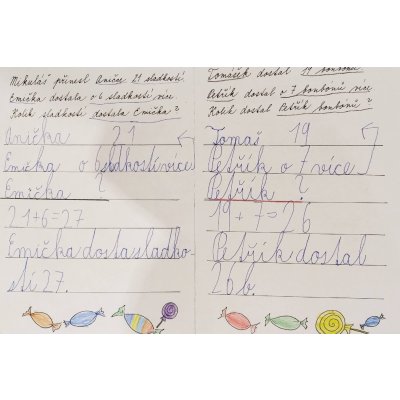 Mikuláš přinesl Aničce 21 sladkostí.
Emička dostala o 6 sladkostí více.
Kolik sladkostí dostala Emička?
Anička 21
Emička o 6 sladkostí více
Emička ?
21+6=27
Emička dosta sladko-
stí 27.
Tomášek dostal 19 bonbonů.
Petřík dostal o 7 bonbonů více.
Kolik dostal Petřík bonbonů?
Tomaš 19
Petřík o 7 více
Petřík ?
19+7=26
Petřík dostal
26 b.